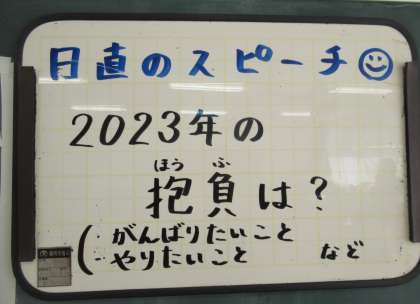 日直のスピーチ
2023年の
ほうふ
抱負は？
(・がんばりたいこと
・やりたいこと など